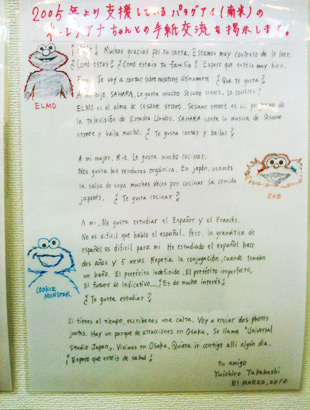 2005年より支援しているパラグアイ(南米)の
ちゃんとの手紙交流を掲示します。
Muchas gracias por tu carta. Estamos muy contento de la leer.
¿Cómo estás? ¿Cómo estais tu familia? Espero que estéis muy bien.
Te voy a contar sobre nosotros últimamente. ¿Que te gusta?
SAHARA, Le gusta mucho Sesame street. Le conoces?
ELMO es el alma de sesame street. Sesame street es un programa de
la televisión de Estados Unidos. SAHARA canta la musica de Sesame
street y baila mucho. ¿Te gusta cantar y bailar?
ELMO
A mi mujer, Rie, Le gusta mucho cocinar.
Nos gusta las verduras orgánica. En Japón, usamos
la salsa de soya muchas veces por cocinar la comida
japonés. ¿Te gusta cocinar?
ZOE
A mi, Me gusta estudiar el Español y el Francés.
No es difícil que hablo el español. Pero, la gramática de
español es difícil para mi. He estudiado el español hace
dos años y 5 meses. Repetía la conjugación, cuando tomaba
un baño. El pretérito indefinido, El pretérito imperfecto,
El futuro de indicativo... ¡Es de mucho interés!
¿Te gusta estudiar?
COOKIE MONSTER
Si tienes el tiempo, escríbenos una carta. Voy a enviar dos photos
juntas. Hay un parque de atracciones en Osaka. Se llama "Universal
Studio Japan". Vivimos en Osaka. Quiero ir contigo allí algún día.
¡Espero que estéis de salud!
tu amigo
Yuichiro Takahashi
El MARZO, 2010